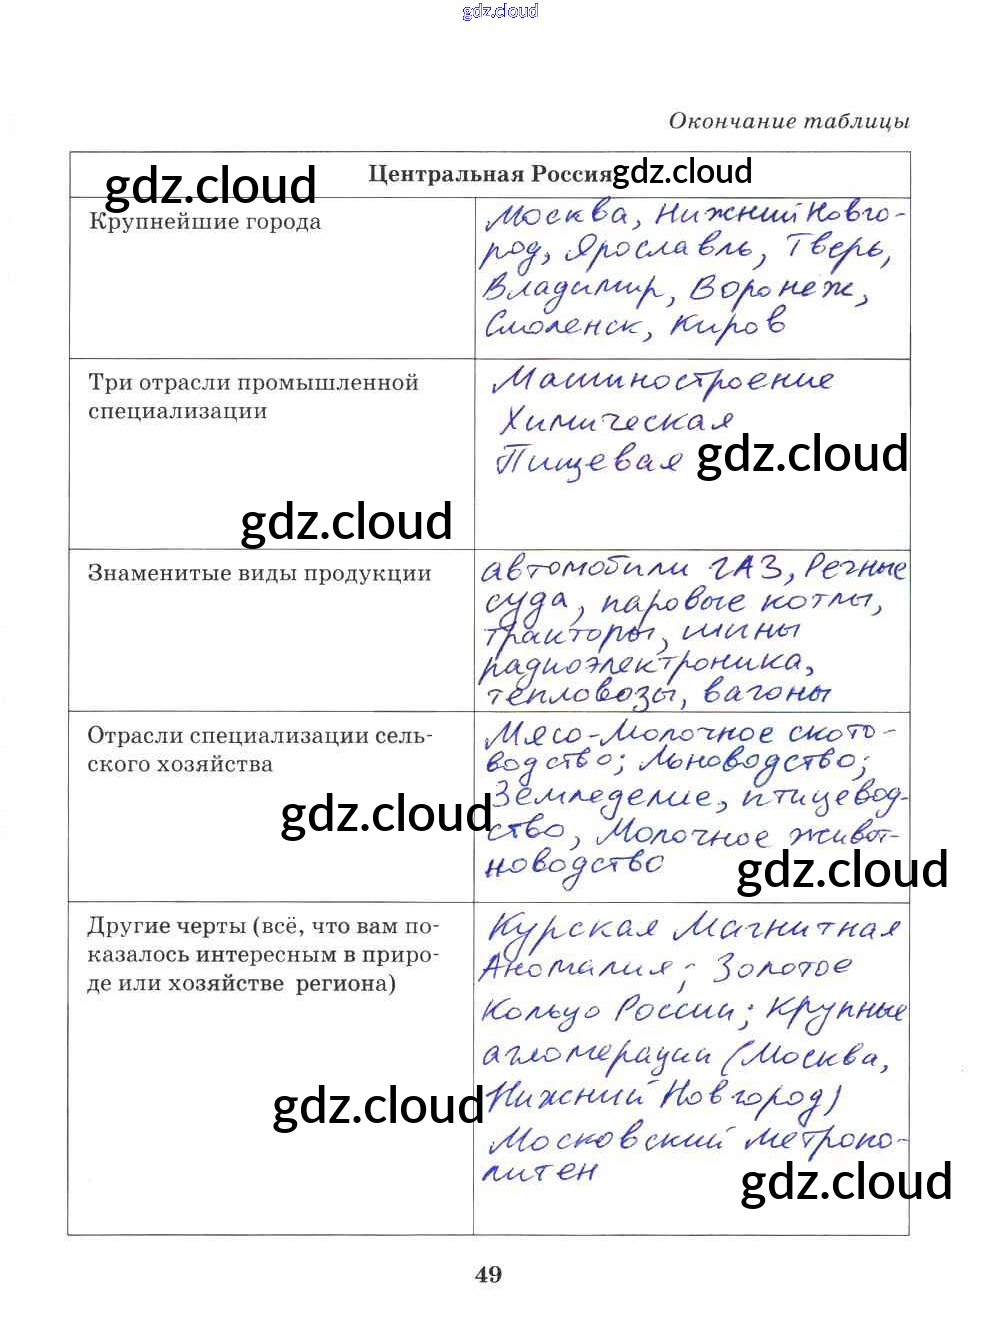 gdz.cloud
Окончание таблицы
Центральная Россия
gdz.cloud
gdz.cloud
Крупнейшие города
Москва, Нижний Новго-
род, Ярославль, Тверь,
Владимир, Воронеж,
Смоленск, Киров
Три отрасли промышленной
специализации
Машиностроение
Химическая
Пищевая
gdz.cloud
gdz.cloud
Знаменитые виды продукции
автомобили ГАЗ, Речные
суда, паровые котлы,
тракторы, шины
радиоэлектроника,
тепловозы, вагоны
Отрасли специализации сель-
ского хозяйства
Мясо-Молочное ското-
водство; Льноводство;
Земледелие, птицевод-
ство, Молочное живот-
новодство
gdz.cloud
gdz.cloud
Другие черты (всё, что вам по-
казалось интересным в приро-
де или хозяйстве региона)
Курская Магнитная
Аномалия; Золотое
Кольцо России; Крупные
агломерации (Москва,
Нижний Новгород)
Московский метропо-
литен
gdz.cloud
gdz.cloud
49